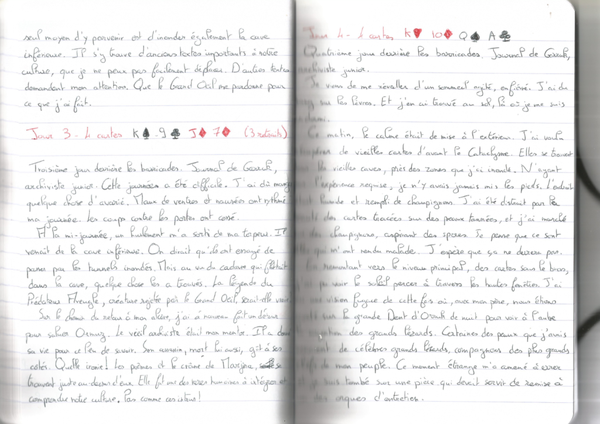 seul moyen d'y parvenir est d'inonder également la cave
inférieure. Il s'y trouve d'anciens textes importants à notre
culture, que je ne peux pas facilement déplacer. D'autres textes
demandent mon attention. Que le Grand Oeil me pardonne pour
ce que j'ai fait.
Jour 3 - 4 cartes K♠ 9♣ J♦ 7♦ (3 restants)
Troisième jour derrière les barricades. Journal de
archiviste junior. Cette journée a été difficile. J'ai dû manger
quelque chose d'avarié. Maux de ventre et nausées ont rythmé
ma journée. Les coups contre les portes ont cessé.
À la mi-journée, un hurlement m'a sorti de ma torpeur. Il
venait de la cave inférieure. On dirait qu'ils ont essayé de
passer par les tunnels inondés. Mais au vu du cadavre qui flottait
dans la cave, quelque chose les a trouvés. La légende du
Prédateur Aveugle, créature rejetée par le Grand Oeil, serait-elle vraie
Sur le chemin du retour à mon atelier, j'ai à nouveau fait un détour
pour saluer Le vieil architecte était mon mentor. Il a donné
sa vie pour ce lieu de savoir. Son assassin, mort lui aussi, gît à ses
côtés. Quelle ironie! Les poèmes et le crâne de se
trouvent juste au-dessus d'eux. Elle fut une des rares humaines à
comprendre notre culture. Pas comme ces intrus!
Jour 4 - 4 cartes K♥ 10♦ Q♠ A♣
Quatrième jour derrière les barricades. Journal de
archiviste junior.
Je viens de me réveiller d'un sommeil agité, enfiévré. J'ai
sur les livres. Et j'en ai trouvé au sol, là où je me suis
Ce matin, le calme était de mise à l'extérieur. J'ai voulu
de vieilles cartes d'avant le Cataclysme. Elles se trouvent
les vieilles caves, près des zones que j'ai inondé. N'ayant
l'expérience requise, je n'y avais jamais mis les pieds. L'endroit
humide et rempli de champignons. J'ai été distrait par les
des cartes tracées sur des peaux tannées, et j'ai marché
des champignons, aspirant des spores. Je pense que ce sont
qui m'ont rendu malade. J'espère que ça ne durera pas.
En remontant vers le niveau principal, des cartes sous le bras,
j'ai pu voir le soleil percer à travers les hautes fenêtres. J'ai
une vision fugace de cette fois où, avec mon père, nous étions
sur la grande Dent d'Osrak de nuit pour voir à l'aube
migration des grands lézards. Certaines des peaux que j'avais
ont de célèbres grands lézards, compagnons des plus grands
de mon peuple. Ce moment étrange m'a amené à errer
je suis tombé sur une pièce qui devait servir de remise à
d'entretien.